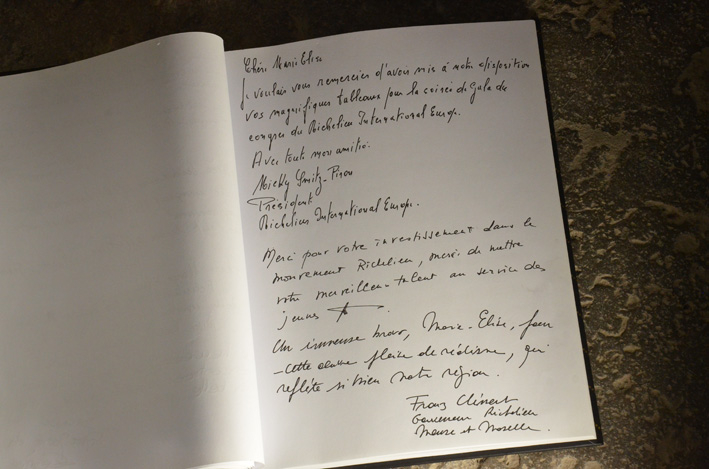 Chère Marie Elise
Je voulais vous remercier d'avoir mis à notre disposition
vos magnifiques tableaux pour la soirée de Gala du
congrès du Richelieu International Europe.
Avec toute mon amitié.
Président
Richelieu International Europe.
Merci pour votre investissement dans le
mouvement Richelieu, merci de mettre
votre merveilleux talent au service des
jeunes
Un immense bravo, Marie-Elise, pour
cette œuvre pleine de réalisme, qui
reflète si bien notre région.
Franz Clément
Gouverneur Richelieu
Meuse et Moselle.